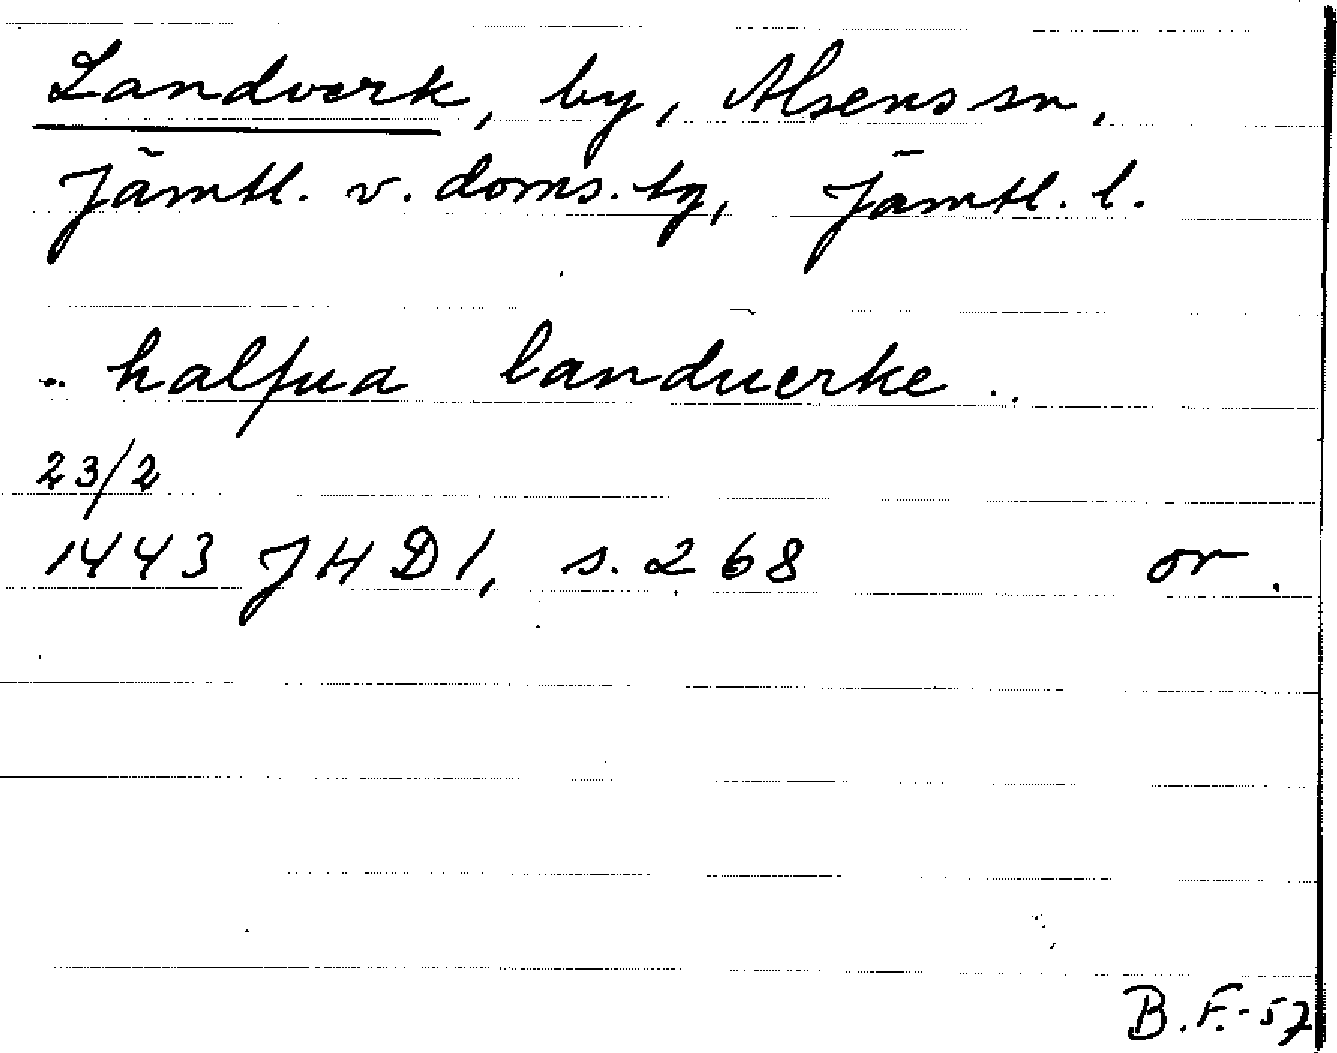 Landverk, by, Alsens sn,
Jämtl. v. doms. tg, Jämtl. l.
.. halfua landuerke ..
23/2
1443 JHD 1, s. 268 or.
B.F.-57